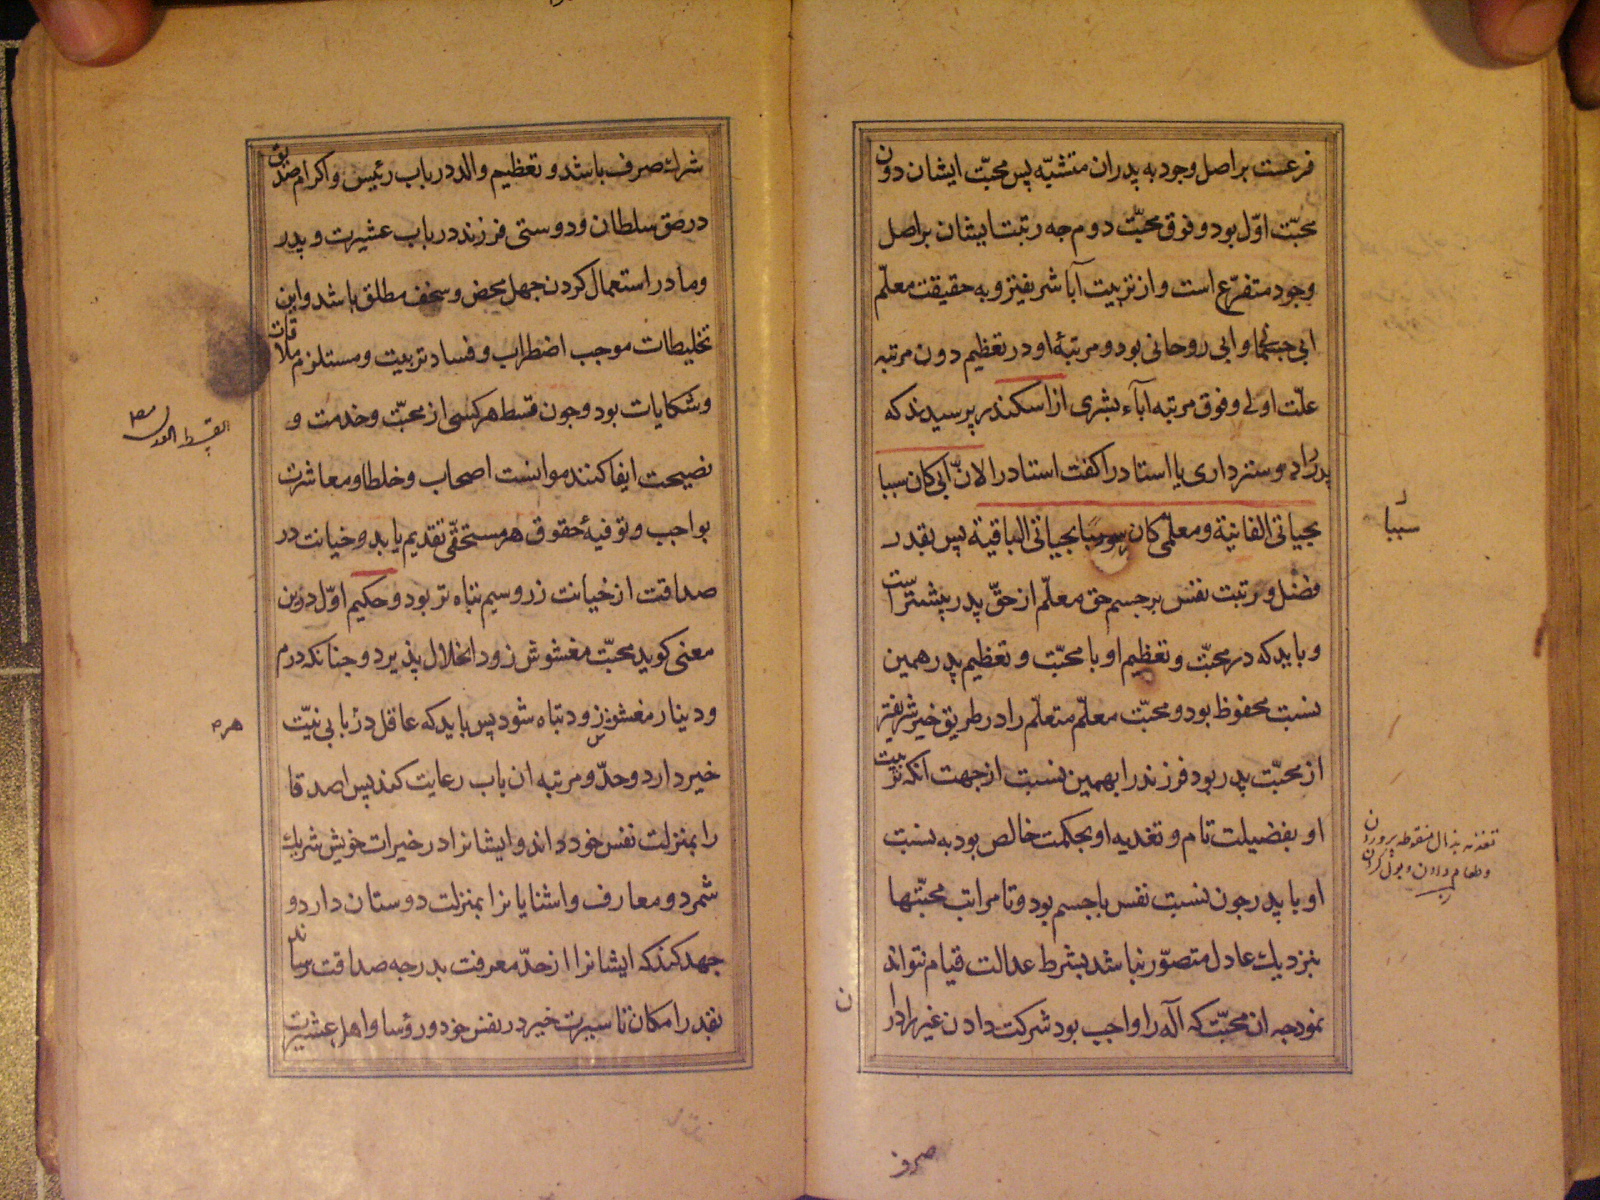 فرعست بر اصل وجود به پدران متشبّه پس محبّت ایشان دون
محبّت اوّل بود و فوق محبّت دوم جه رتبت ایشان بر اصل
وجود متفرّع است و از تربیت آبا شریفتر و به حقیقت معلّم
ابی جسمانی و ابی روحانی بود و مرتبهٔ او در تعظیم دون مرتبه
علّت اولی و فوق مرتبه آباء بشری از اسکندر پرسیدند که
پدر را دوستر داری یا استاد را کفت استاد را لانّ ابی کان سببا
بحیاتی الفانیة و معلمی کان سببا بحیاتی الباقیة پس بقدر
فضل و رتبت نفس بر جسم حق معلّم از حقّ پدر بیشتر است
و باید که در محبّت و تعظیم او با محبّت و تعظیم پدر همین
نسبت محفوظ بود و محبّت معلّم متعلّم را در طریق خیر شریفتر
از محبّت پدر بود فرزند را بهمین نسبت از جهت انکه تربیت
او بفضیلت تام و تغدیه او بحکمت خالص بود به نسبت
او با پدر جون نسبت نفس با جسم بود و تا مراتب محبّتها
بنزدیك عادل متصوّر نباشد بشرط عدالت قیام نتواند
نمود جه ان محبّت که اله را واجب بود شرکت دادن غیر را در
سببا
تغذیه بذال منقوطه پروردن
و طعام دادن و بول کردن
ن
صرف
شرك صرف باشد و تعظیم والد در باب رئیس و اکرام صدیق
در حق سلطان و دوستی فرزند در باب عشیرت و پدر
و مادر استعمال کردن جهل محض و سخف مطلق باشد و این
تخلیطات موجب اضطراب و فساد تربیت و مستلزم ملامات
و شکایات بود و جون قسط هر کسی از محبّت و خدمت و
نصیحت ایفا کنند موانست اصحاب و خلطا و معاشرت
بواجب و توفیهٔ حقوق هر مستحقّی تقدیم یابد و خیانت در
صداقت از خیانت زر و سیم تباه تر بود و حکیم اوّل درین
معنی کوید محبّت مغشوش زود انحلال پذیرد و جنانکه درم
و دینار مغشوش زود تباه شود پس باید که عاقل در بابی نیّت
خیر دارد و حدّ و مرتبه ان باب رعایت کند پس اصدقا
را بمنزلت نفس خود داند و ایشانرا در خیرات خویش شریك
شمرد و معارف و اشنایانرا بمنزلت دوستان دارد و
جهد کند که ایشانرا از حدّ معرفت بدرجه صداقت رساند
بقدر امکان تا سیرت خیر در نفس خود و رؤسا و اهل عشیرت
القسط العدل
هر